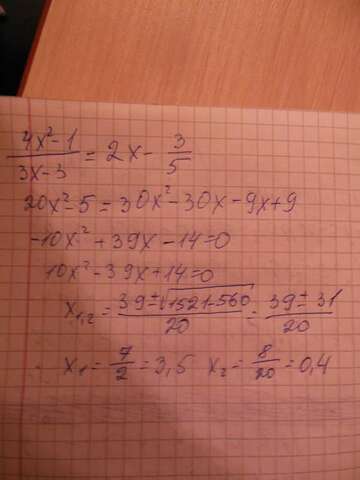 (4x²-1)/(3x-3) = 2x - 3/5
20x²-5=30x²-30x-9x+9
-10x²+39x-14=0
10x²-39x+14=0
x₁,₂ = (39±√(1521-560))/20 = (39±31)/20
x₁ = 7/2 = 3,5 x₂ = 8/20 = 0,4